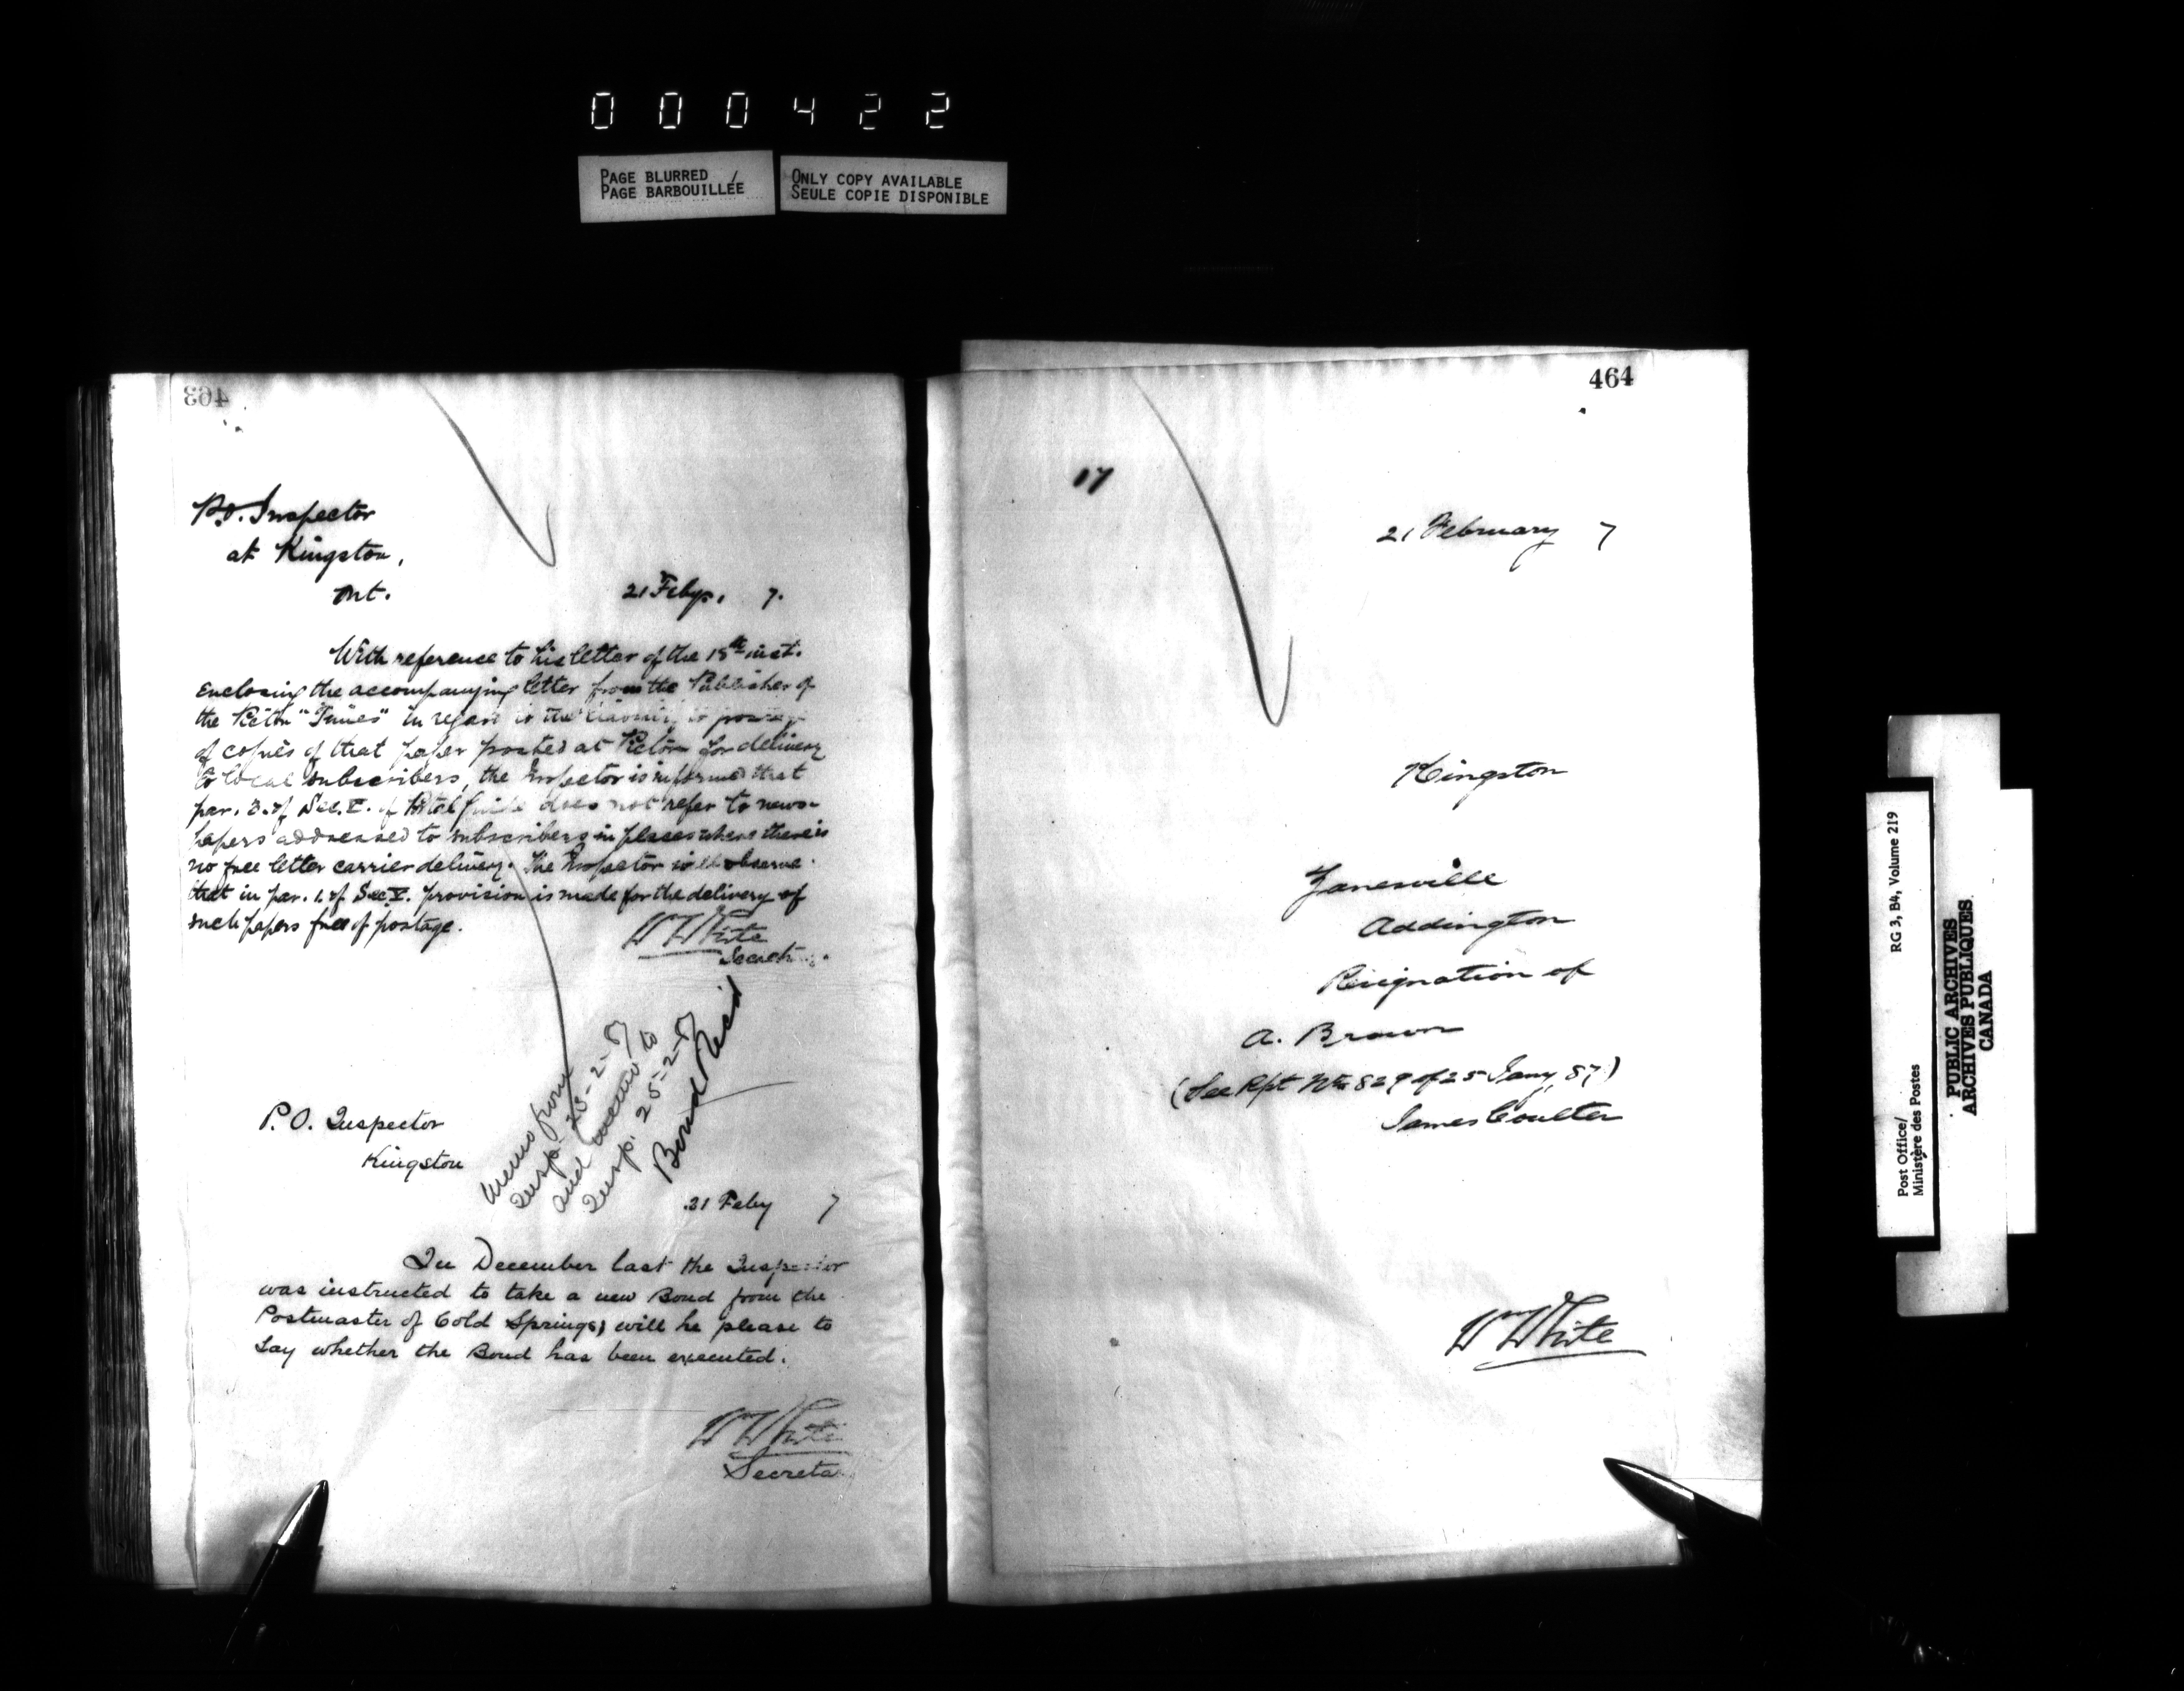 000422
PAGE BLURRED /
PAGE BARBOUILLÉE
ONLY COPY AVAILABLE
SEULE COPIE DISPONIBLE
463
P.O. Inspector
at Kingston,
Ont.
21 Feby. 7.
With reference to his letter of the 18th inst.
enclosing the accompanying letter from the Publisher of
the Picton "Times" in regard to the liability to postage
of copies of that paper posted at Picton for delivery
to local subscribers, the Inspector is informed that
par. 3. of Sec. V. of Postal Guide does not refer to news-
papers addressed to subscribers in places where there is
no free letter carrier delivery. The Inspector will observe
that in par. 1. of Sec. V. provision is made for the delivery of
such papers free of postage.
Wm White
P.O. Inspector
Kingston
Memo from
Insp. 23-2-87
and to
Insp. 25-2-87
Bond Recd
21 Feby 7
In December last the Inspector
was instructed to take a new Bond from the
Postmaster of Cold Springs, will he please to
say whether the Bond has been executed.
Wm White
Secreta
464
17
21 February 7
Kingston
Janesville
Addington
Resignation of
A. Brown
(See Rpt No 829 of 25 Jany, 87)
James Coulter
Wm White
Post Office/ RG 3, B4, Volume 219
Ministère des Postes
PUBLIC ARCHIVES
ARCHIVES PUBLIQUES
CANADA